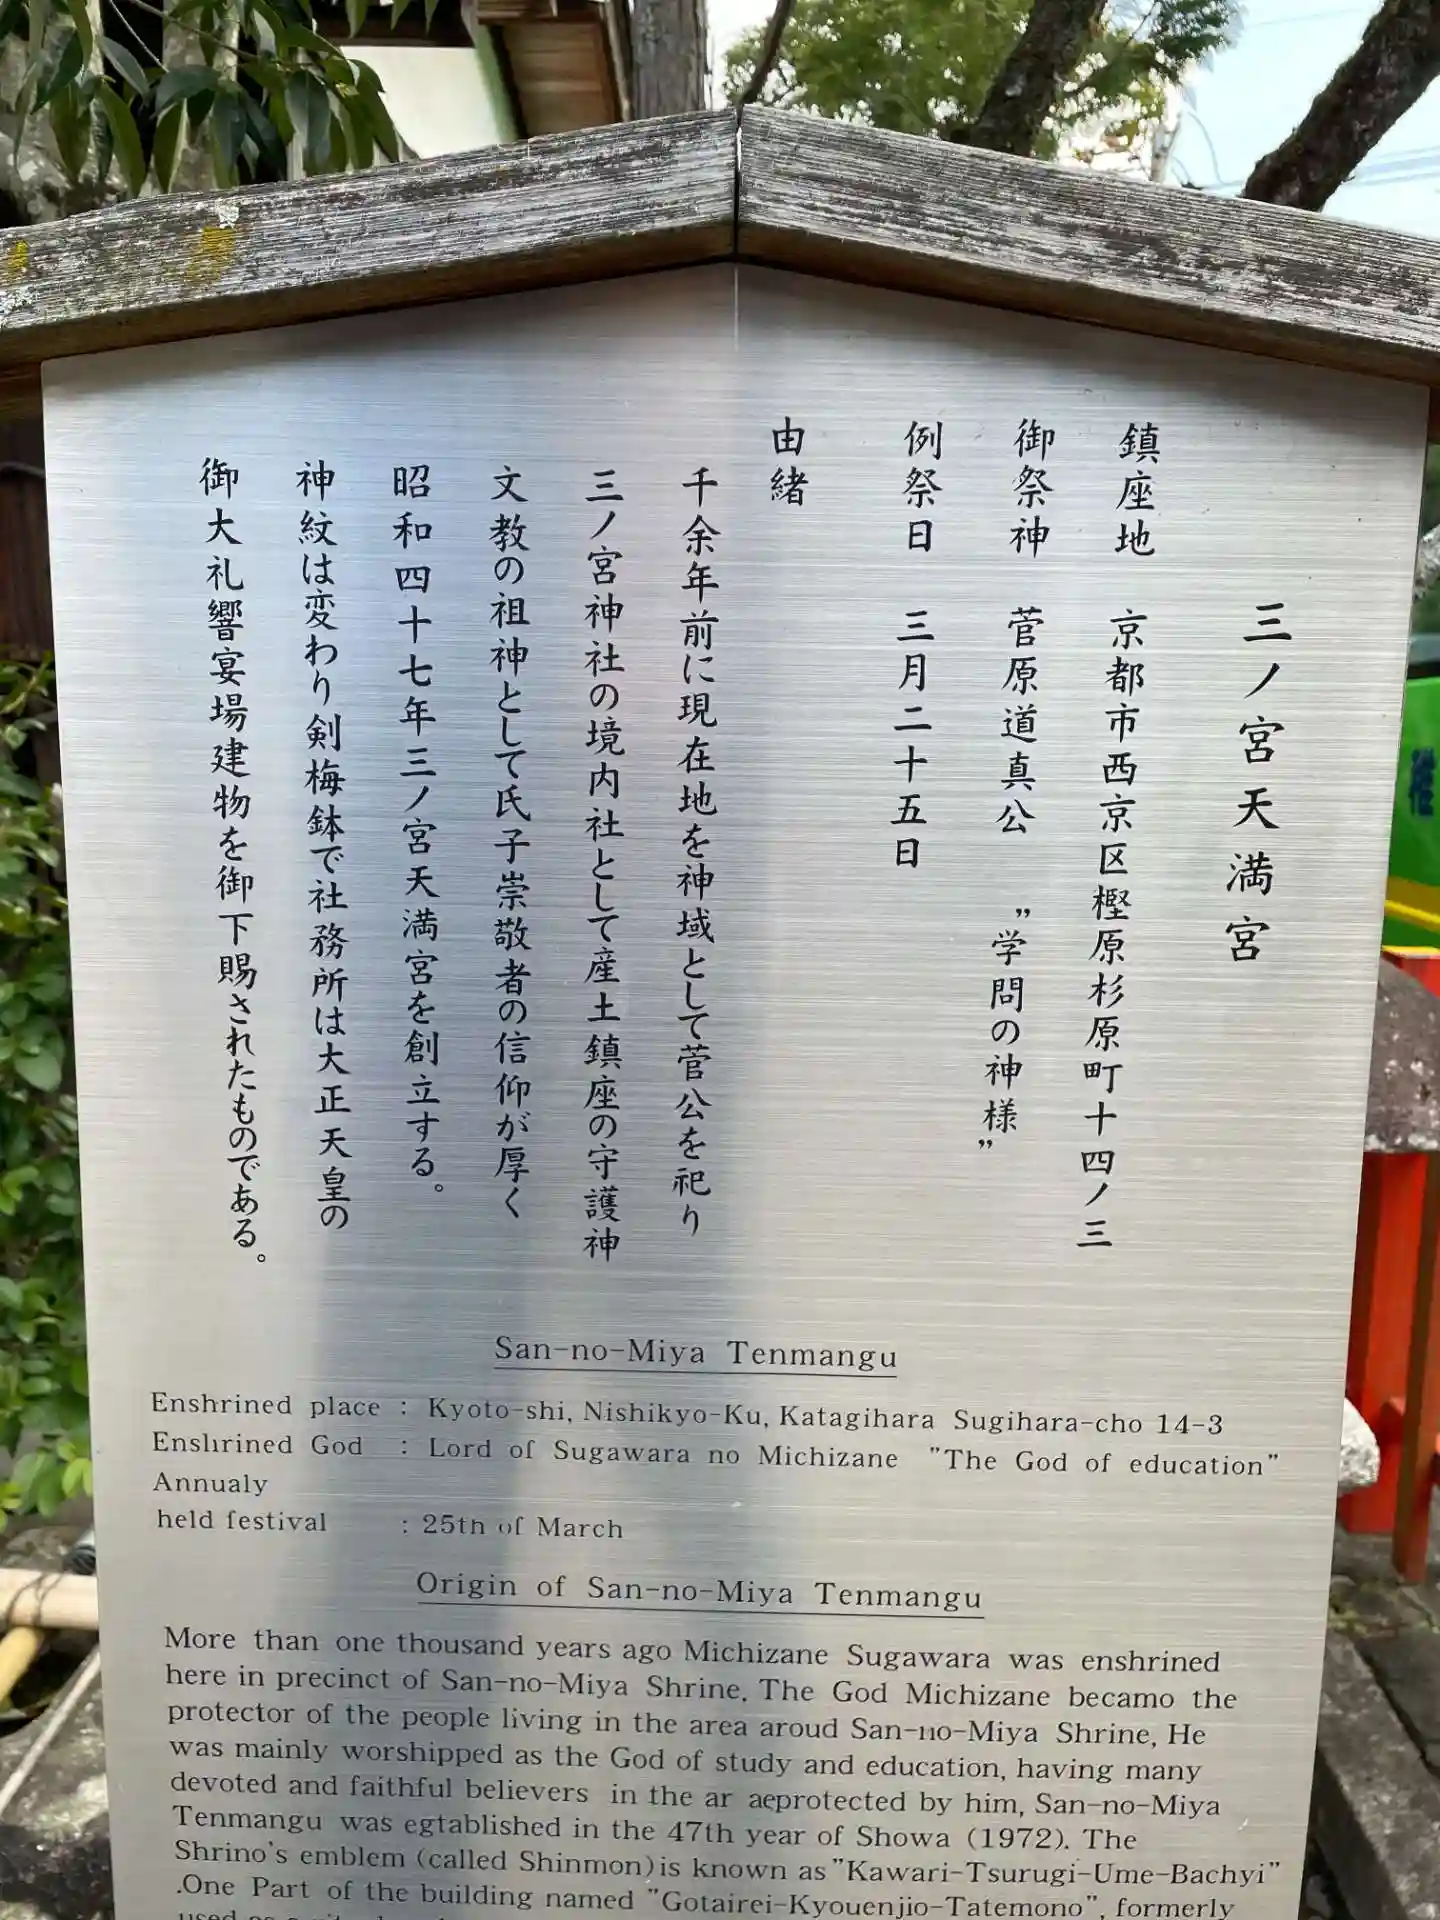 三ノ宮天満宮
鎮座地 京都市西京区樫原杉原町十四ノ三
御祭神 菅原道真公 "学問の神様"
例祭日 三月二十五日
由緒
千余年前に現在地を神域として菅公を祀り
三ノ宮神社の境内社として産土鎮座の守護神
文教の祖神として氏子崇敬者の信仰が厚く
昭和四十七年三ノ宮天満宮を創立する。
神紋は変わり剣梅鉢で社務所は大正天皇の
御大礼響宴場建物を御下賜されたものである。
San-no-Miya Tenmangu
Enshrined place : Kyoto-shi, Nishikyo-Ku, Katagihara Sugihara-cho 14-3
Enshrined God : Lord of Sugawara no Michizane "The God of education"
Annualy
held festival : 25th of March
Origin of San-no-Miya Tenmangu
More than one thousand years ago Michizane Sugawara was enshrined
here in precinct of San-no-Miya Shrine, The God Michizane becamo the
protector of the people living in the area aroud San-no-Miya Shrine, He
was mainly worshipped as the God of study and education, having many
devoted and faithful believers in the ar aeprotected by him, San-no-Miya
Tenmangu was egtablished in the 47th year of Showa (1972). The
Shrino's emblem (called Shinmon)is known as "Kawari-Tsurugi-Ume-Bachyi"
.One Part of the building named "Gotairei-Kyouenjio-Tatemono", formerly